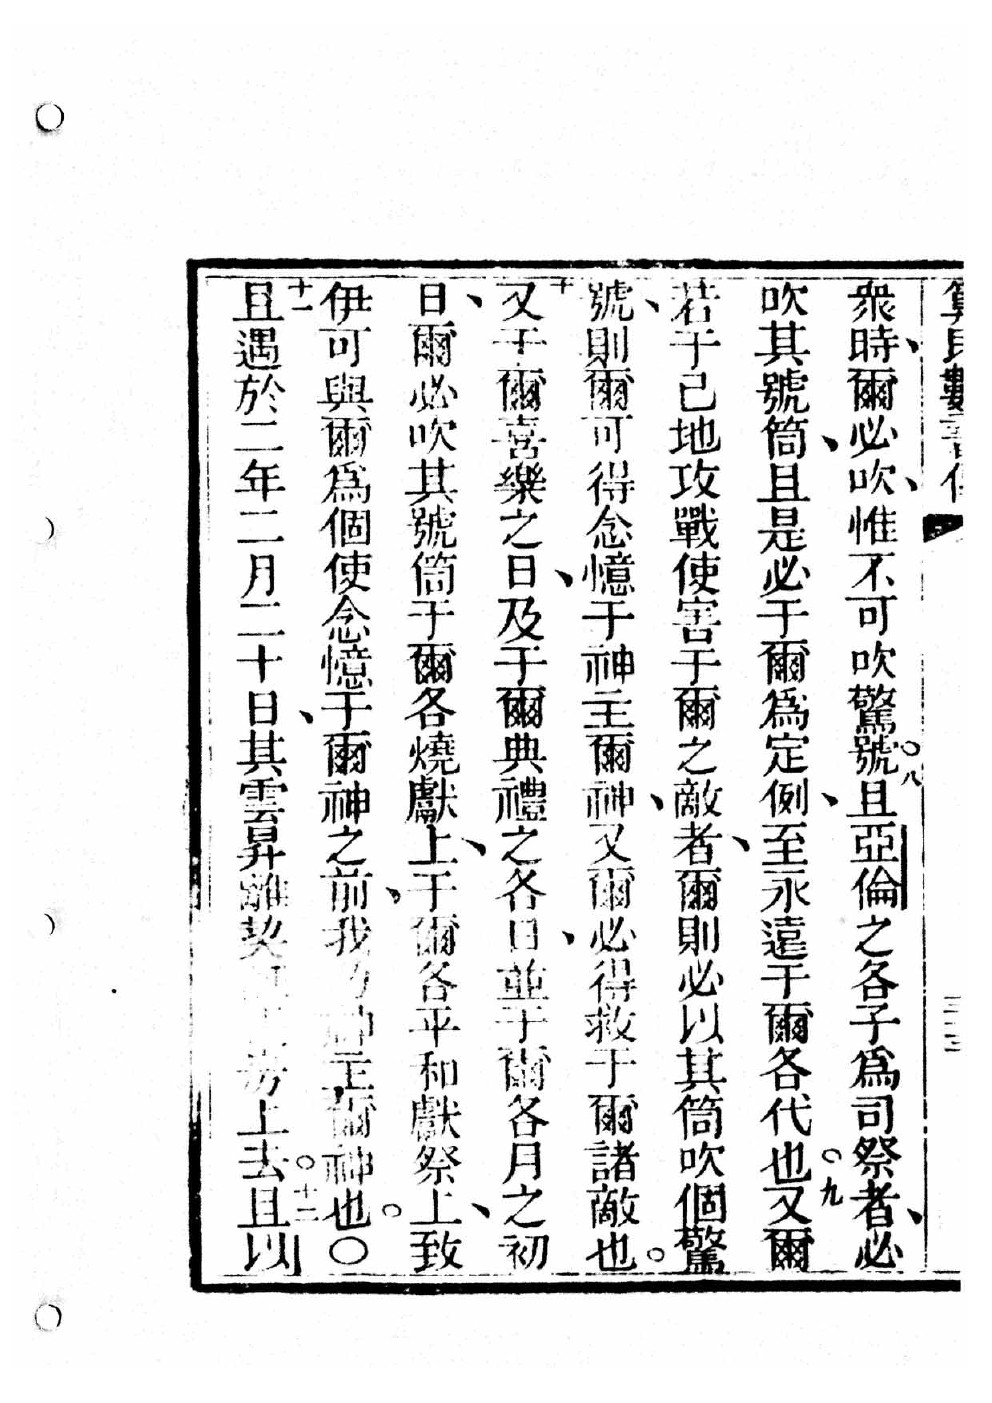 衆時、爾必吹、惟不可吹驚號。八且亞倫之各子爲司祭者、必
吹其號筒、且是必于爾爲定例、至永遠于爾各代也。九又爾
若于己地攻戰使害于爾之敵者、爾則必以其筒吹個驚
號、則爾可得念憶于神主爾神、又爾必得救于爾諸敵也。
十又于爾喜樂之日、及于爾典禮之各日、並于爾各月之初
日、爾必吹其號筒于爾各燒獻上、于爾各平和獻祭上、致
伊可與爾爲個使念憶于爾神之前、我乃神主爾神也。〇
十一且遇於二年二月二十日、其雲昇離契房上去。十二且以